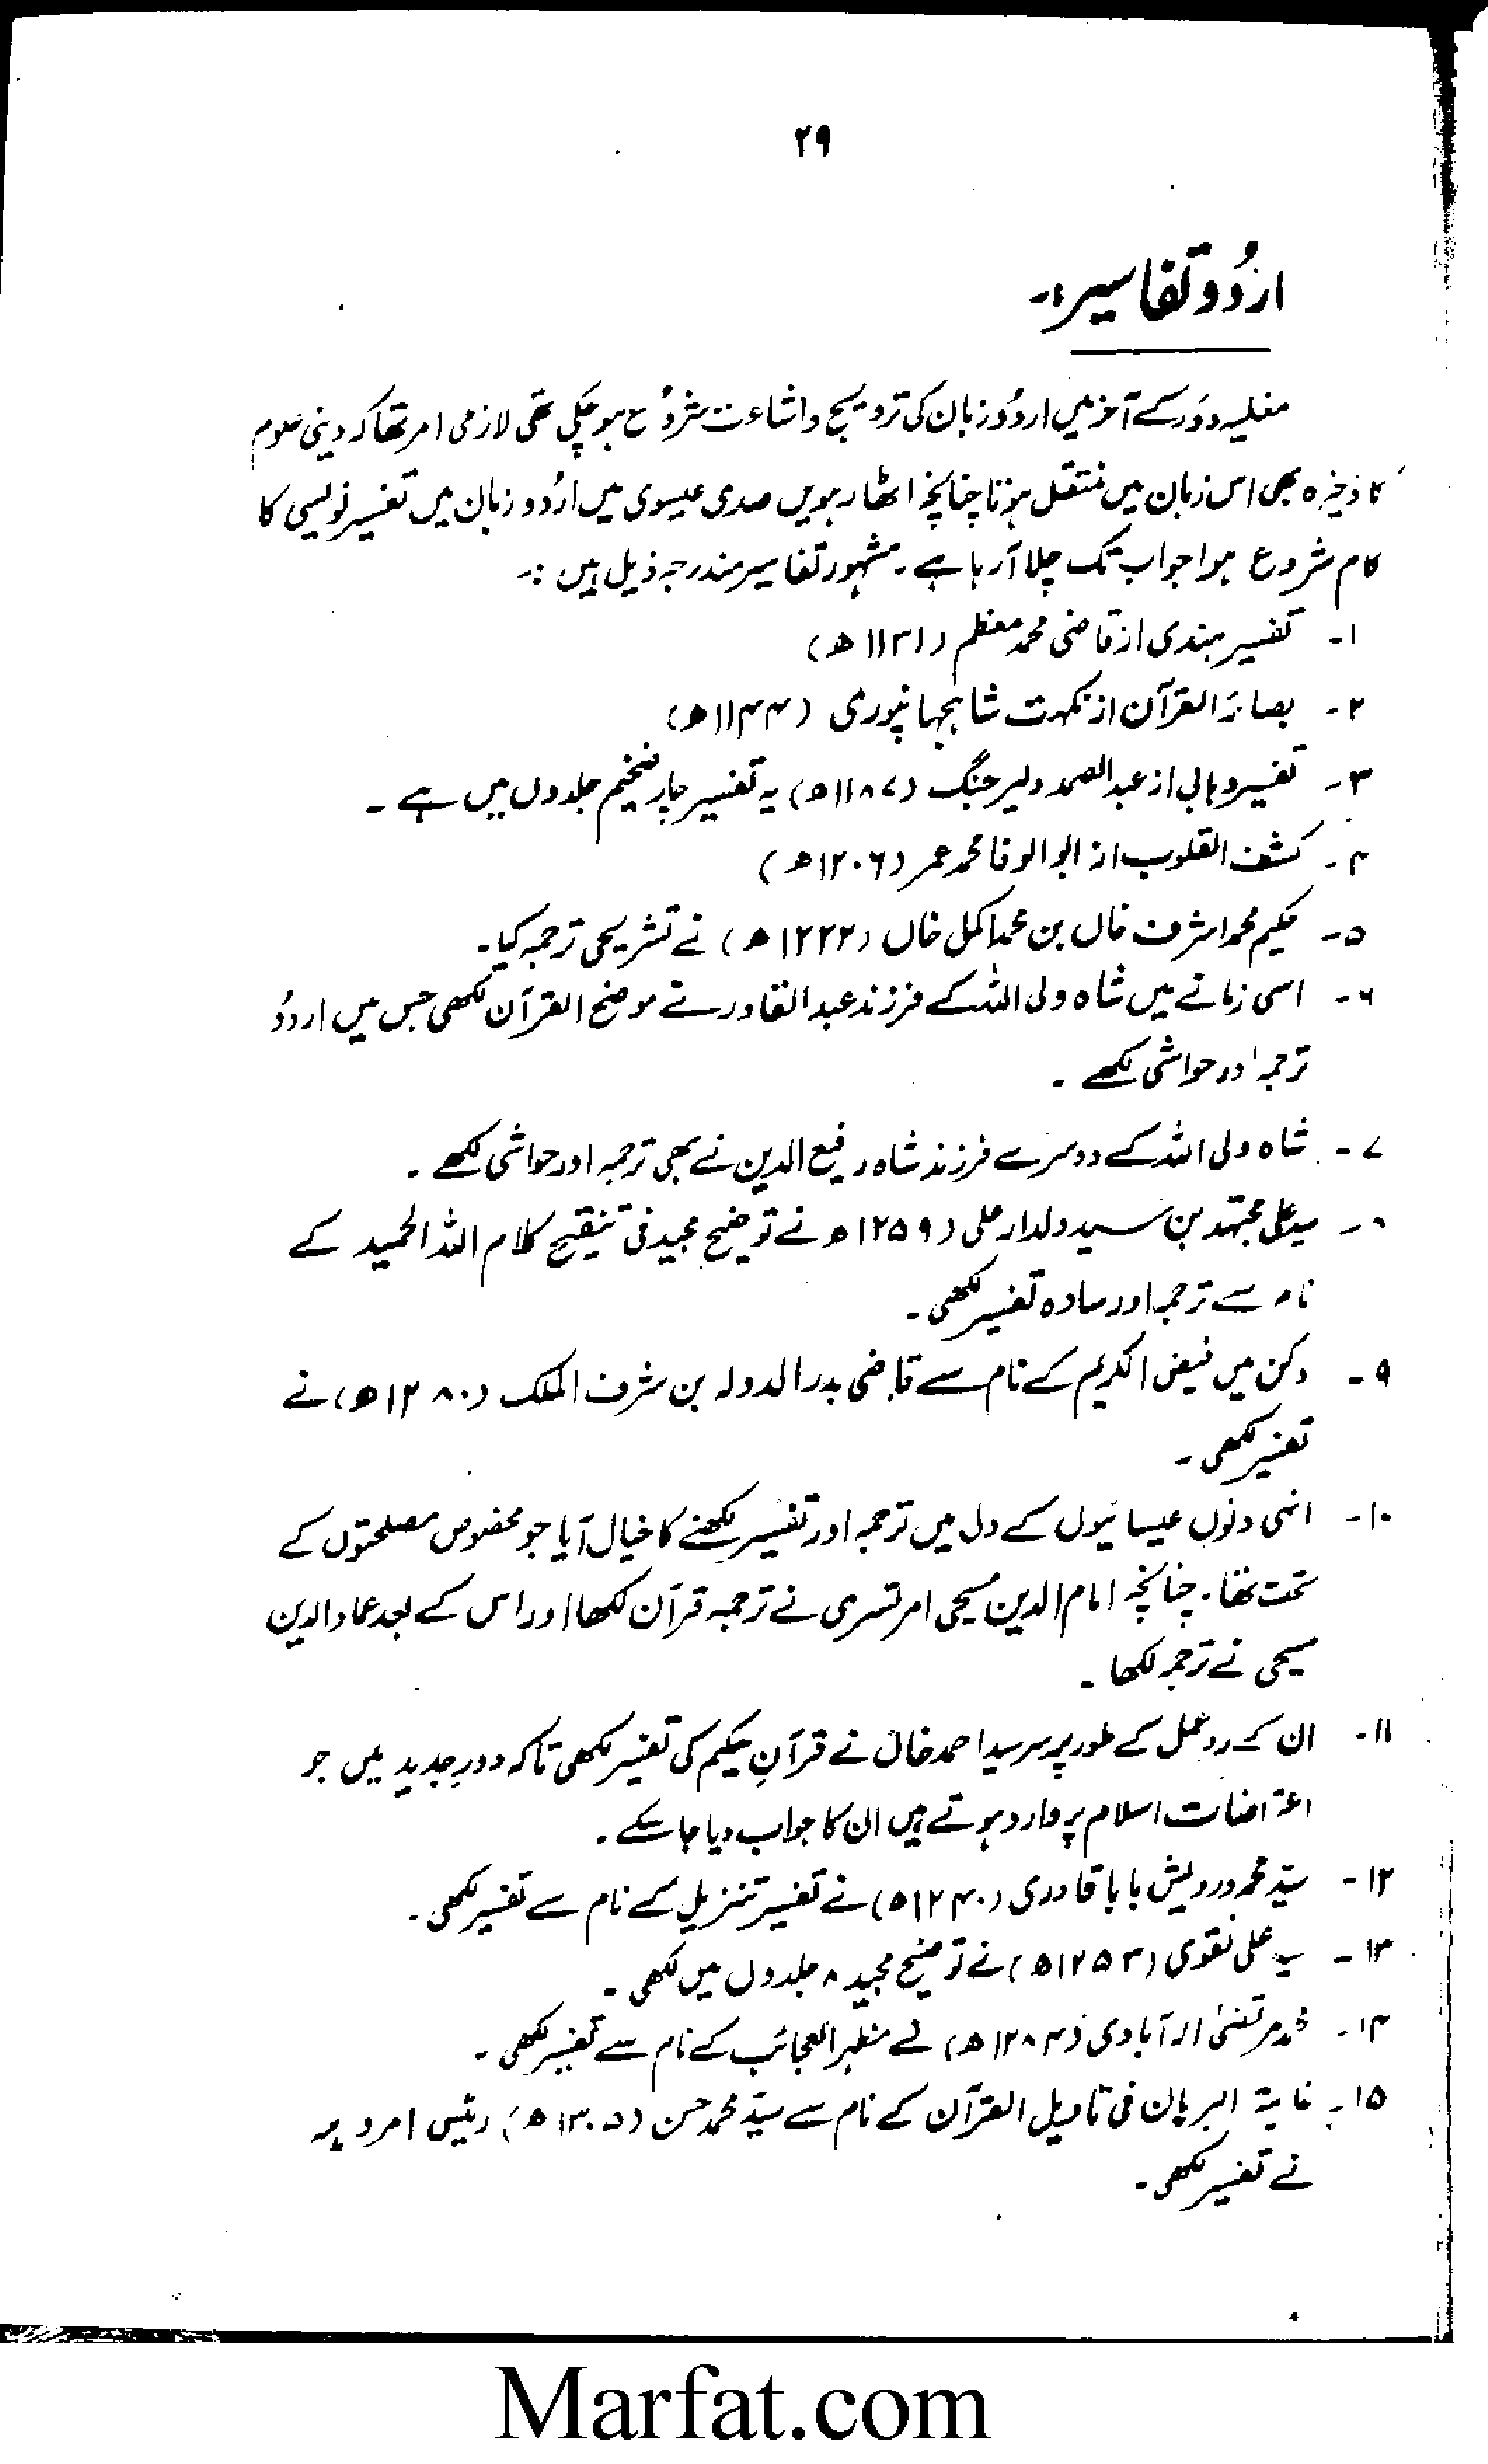 ۲۹
اردُو تفاسیر:۔
مغلیہ دور کے آخر میں اردُو زبان کی ترویج و اشاعت شروُع ہو چکی تھی لازمی امر تھا کہ دینی علوم
کا ذخیرہ بھی اس زبان میں منتقل ہوتا چنانچہ اٹھارہویں صدی عیسوی میں اُردو زبان میں تفسیر نویسی کا
کام شروع ہوا جو اب تک چلا آ رہا ہے ۔ مشہور تفاسیر مندرجہ ذیل ہیں :۔
۱۔ تفسیر ہندی از قاضی محمد معظم (۱۱۳۱ھ)
۲۔ بصائر القرآن از نکہت شاہجہانپوری (۱۱۴۴ھ)
۳۔ تفسیر وہابی از عبد الصمد دلیر جنگ (۱۱۸۷ھ) یہ تفسیر چار ضخیم جلدوں میں ہے ۔
۴۔ کشف القلوب از ابو الوفا محمد عمر (۱۲۰۶ھ)
۵۔ حکیم محمد اشرف خاں بن محمد اکمل خاں (۱۲۲۲ھ) نے تشریحی ترجمہ کیا۔
۶۔ اسی زمانے میں شاہ ولی اللہ کے فرزند عبد القادر نے موضح القرآن لکھی جس میں اردوُ
ترجمہ اور حواشی لکھے ۔
۷۔ شاہ ولی اللہ کے دوسرے فرزند شاہ رفیع الدین نے بھی ترجمہ اور حواشی لکھے ۔
۸۔ سید علی مجتہد بن سید دلدار علی (۱۲۵۹ھ نے توضیح مجید فی تنقیح کلام اللہ الحمید کے
نام سے ترجمہ اور سادہ تفسیر لکھی ۔
۹۔ دکن میں فیض الکریم کے نام سے قاضی بدر الدولہ بن شرف الملک (۱۲۸۰ھ) نے
تفسیر لکھی ۔
۱۰۔ انہی دنوں عیسائیوں کے دل میں ترجمہ اور تفسیر لکھنے کا خیال آیا جو مخصوص مصلحتوں کے
تحت تھا ۔ چنانچہ امام الدین مسیحی امرتسری نے ترجمہ قرآن لکھا اور اس کے بعد عماد الدین
مسیحی نے ترجمہ لکھا ۔
۱۱۔ ان کے ردِ عمل کے طور پر سرسید احمد خاں نے قرآنِ حکیم کی تفسیر لکھی تاکہ دورِ جدید میں جو
اعتراضات اسلام پر وارد ہوتے ہیں ان کا جواب دیا جا سکے ۔
۱۲۔ سیّد محمد درویش بابا قادری (۱۲۴۰ھ) نے تفسیر تنزیل کے نام سے تفسیر لکھی ۔
۱۳۔ سید علی نقوی (۱۲۵۳ھ) نے توضیح مجید ۸ جلدوں میں لکھی ۔
۱۴۔ محمد مرتضیٰ الہ آبادی (۱۲۸۴ھ) نے مظہر العجائب کے نام سے تفسیر لکھی ۔
۱۵۔ غایۃ البرہان فی تاویل القرآن کے نام سے سیّد محمد حسن (۱۳۰۵ھ) رئیس امروہہ
نے تفسیر لکھی ۔
Marfat.com